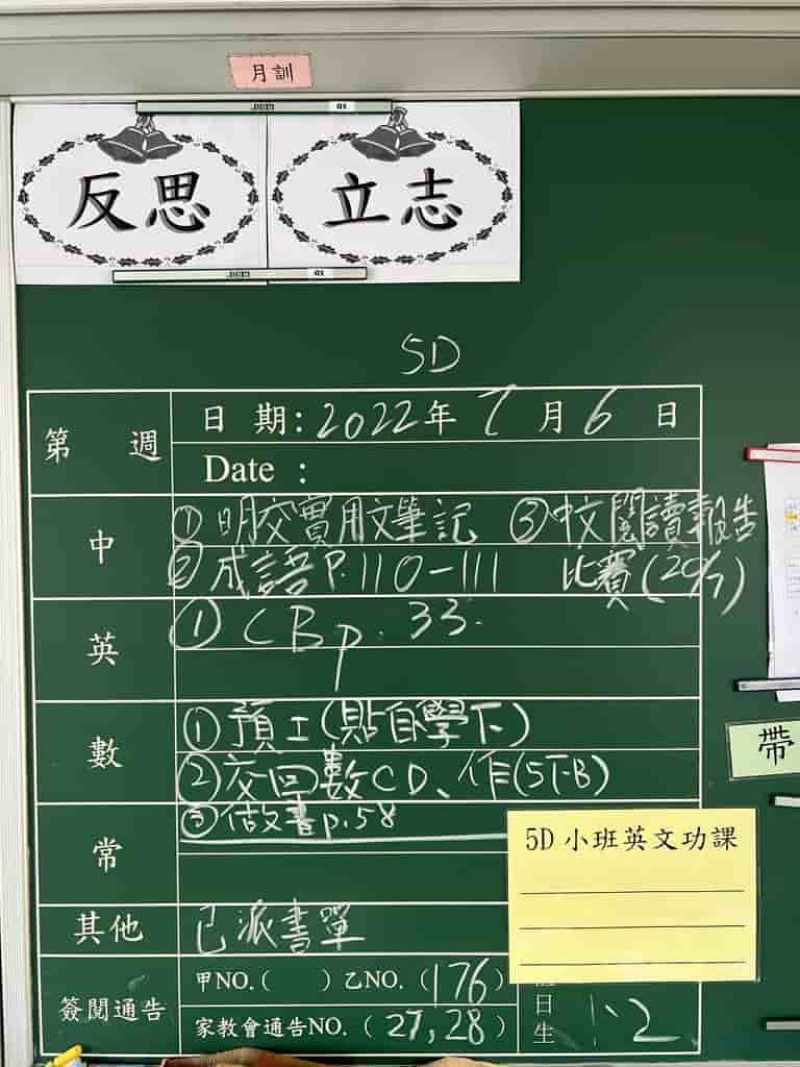 月訓
反思 立志
5D
第 週
日 期：2022年 7 月 6 日
Date ：
中
① 明交實用文筆記 ③ 中文閱讀報告
② 成語 P.110-111 比賽(20/7)
英
① CB p. 33.
數
① 預工(貼自學下)
② 交回數CD、作(5下B)
③ 做書p.58
常
5D 小班英文功課
其他
已派書單
簽閱通告
甲NO.( ) 乙NO.(176)
家教會通告NO.(27,28)
日生
帶